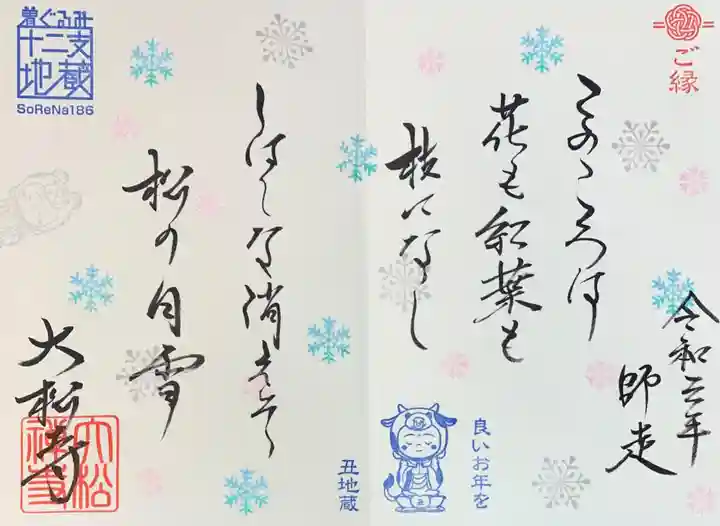 ご縁
令和三年
師走
このころは
花も紅葉も
枝になし
良いお年を
丑地蔵
しはしな消えそ
松の白雪
大松寺
着ぐるみ
十二支
地蔵
SoReNa186